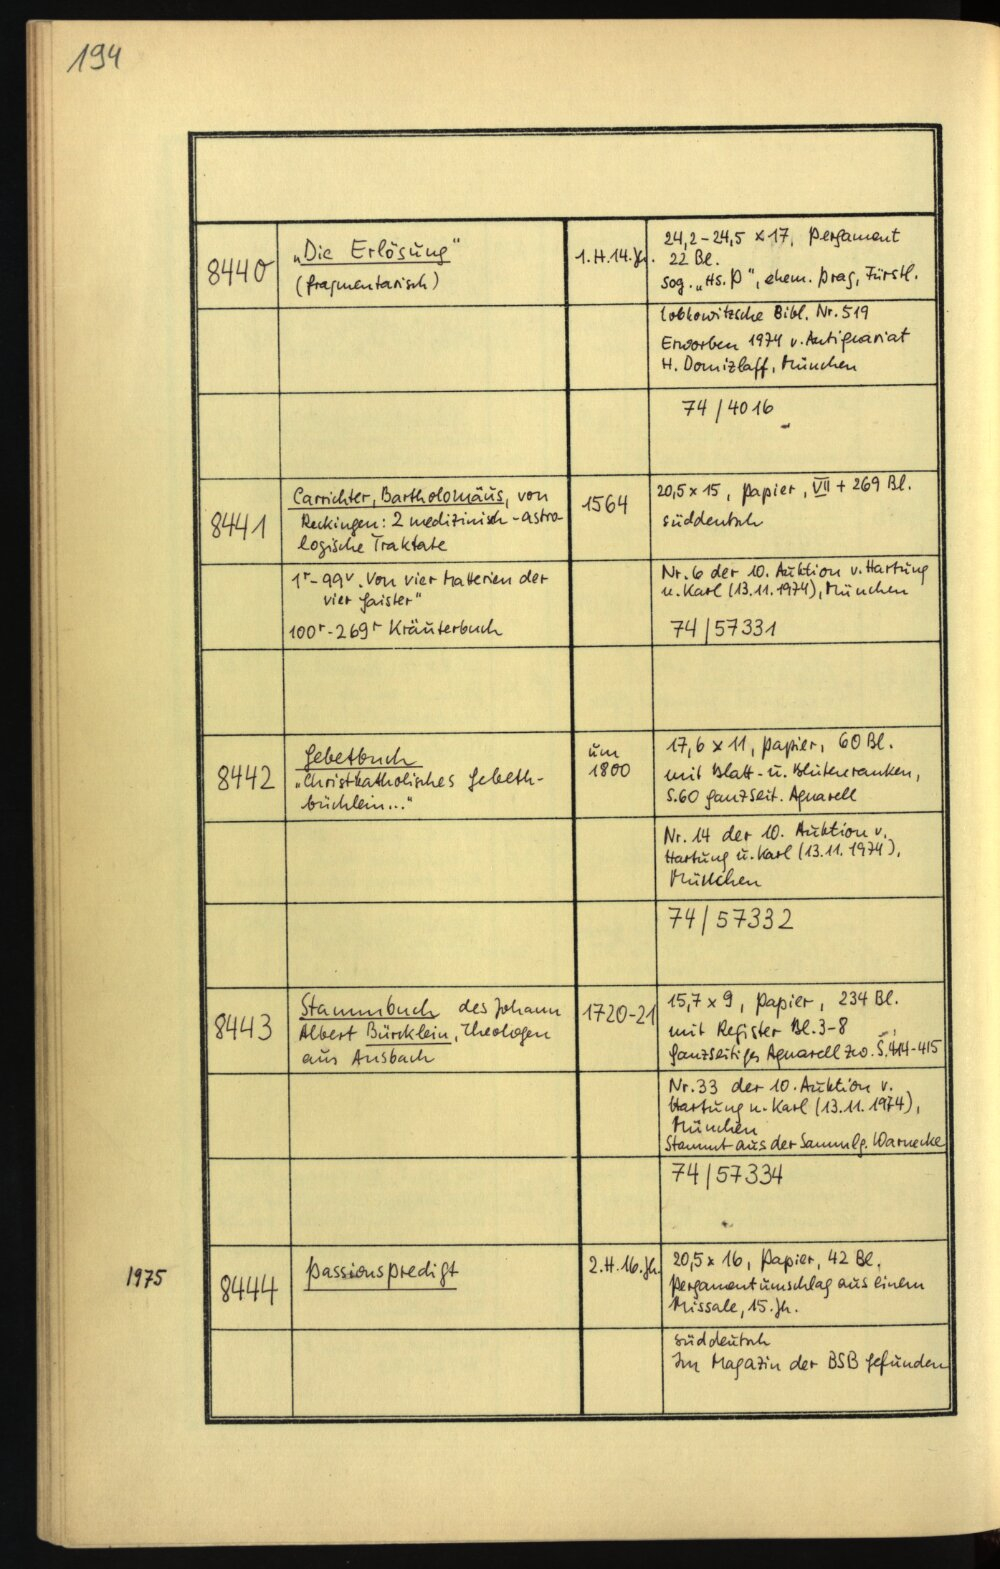 194
8440
„Die Erlösung"
(fragmentarisch)
1.H.14.Jh.
24,2-24,5 x 17, Pergament
22 Bl.
sog. „Hs. P", ehem. Prag, Fürstl.
Lobkowitzsche Bibl. Nr. 519
Erworben 1974 v. Antiquariat
H. Domizlaff, München
74/4016
8441
Carrichter, Bartholomäus, von
Reckingen: 2 medizinisch-astro-
logische Traktate
1564
20,5 x 15, Papier, VII + 269 Bl.
süddeutsch
1r-99v „Von vier Matterien der
vier Gaister"
100r-269r Kräuterbuch
Nr. 6 der 10. Auktion v. Hartung
u. Karl (13.11.1974), München
74/57331
8442
Gebetbuch
„Christkatholisches Gebeth-
büchlein..."
um
1800
17,6 x 11, Papier, 60 Bl.
mit Blatt- u. Blütenranken,
S. 60 ganzseit. Aquarell
Nr. 14 der 10. Auktion v.
Hartung u. Karl (13.11.1974),
München
74/57332
8443
Stammbuch des Johann
Albert Bürcklein, Theologen
aus Ansbach
1720-21
15,7 x 9, Papier, 234 Bl.
mit Register Bl. 3-8
ganzseitiges Aquarell zw. S. 414-415
Nr. 33 der 10. Auktion v.
Hartung u. Karl (13.11.1974),
München
Stammt aus der Sammlg. Warnecke
74/57334
1975
8444
Passionspredigt
2.H.16.Jh.
20,5 x 16, Papier, 42 Bl.
Pergamentumschlag aus einem
Missale, 15. Jh.
süddeutsch
Im Magazin der BSB gefunden